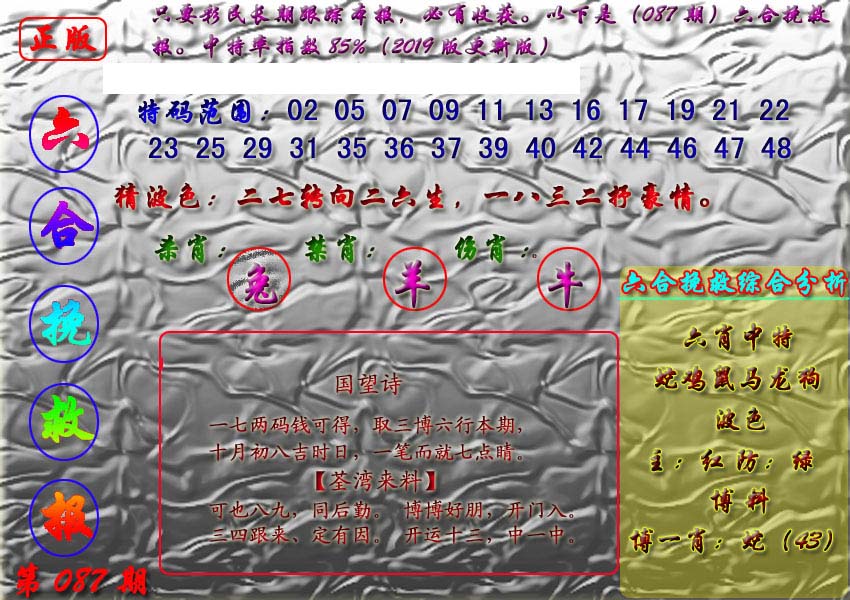 正版
只要彩民长期跟踪本报，必有收获。以下是（087期）六合挽救
报。中特率指数85%（2019版更新版）
六合挽救报
第087期
特码范围：02 05 07 09 11 13 16 17 19 21 22
23 25 29 31 35 36 37 39 40 42 44 46 47 48
猜波色：二七转向二六生，一八三二抒豪情。
杀肖：兔 禁肖：羊 伤肖：。牛
国望诗
一七两码钱可得，取三博六行本期，
十月初八吉时日，一笔而就七点睛。
【荃湾来料】
可也八九，同后勤。 博博好朋，开门入。
三四跟来、定有因。 开运十三，中一中。
六合挽救综合分析
六肖中特
蛇鸡鼠马龙狗
波色
主：红防：绿
博料
博一肖：蛇（43）